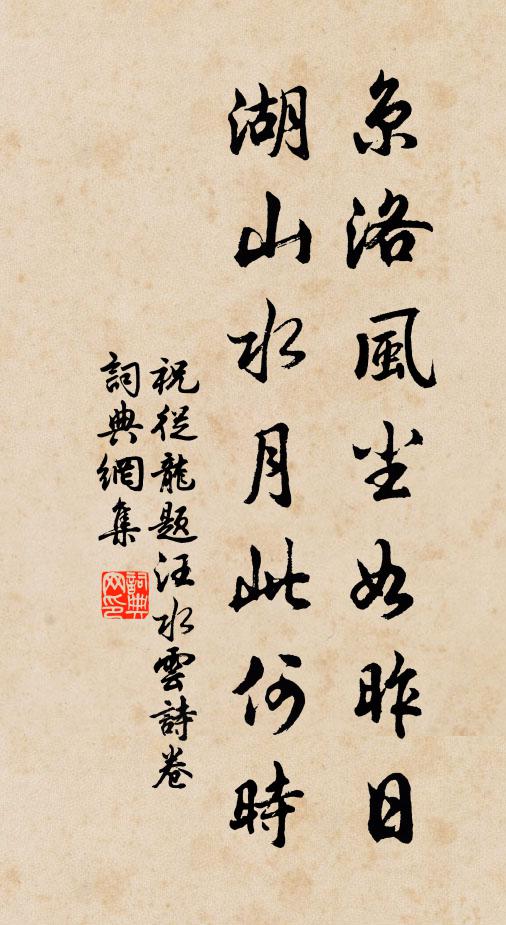 京洛風尘如昨日
湖山水月此何時
祝從龍题汪水雲詩卷
詞典網集
詞典网印